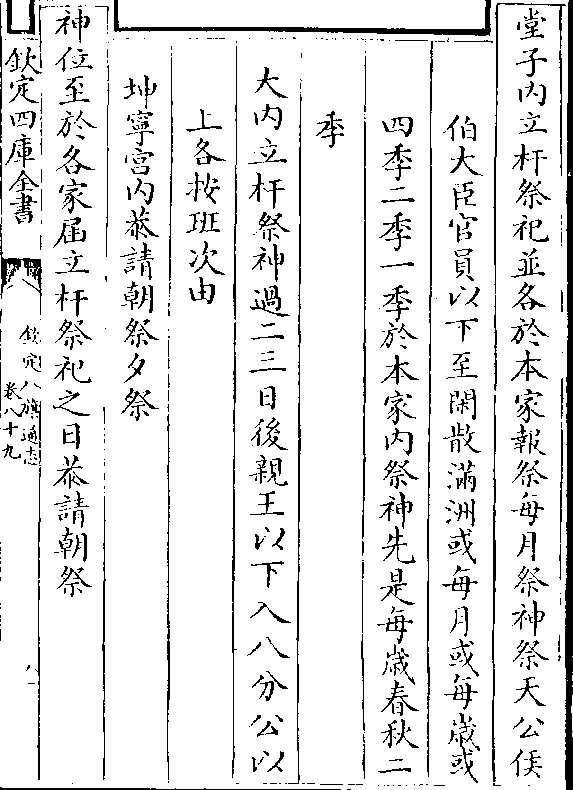 堂子内立杆祭祀並各於本家報祭每月祭神祭天公侯
伯大臣官員以下至閑散滿洲或每月或每歲或
四季二季一季於本家内祭神先是每歲春秋二
季
大内立杆祭神過二三日後親王以下入八分公以
上各按班次由
坤寧宮内恭請朝祭夕祭
神位至於各家屆立杆祭祀之日恭請朝祭
欽定四庫全書
欽定八旗通志
卷八十九
八